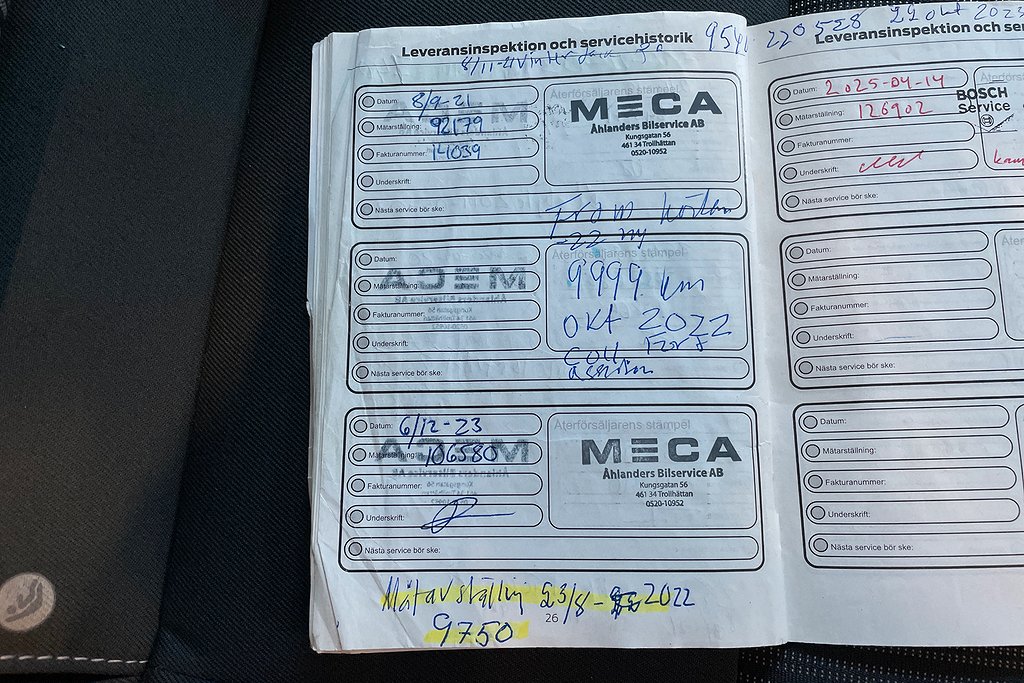 Leveransinspektion och servicehistorik
954
8/11-21 Vinter
Datum: 8/9-21
Mätarställning: 92179
Fakturanummer: 14039
Underskrift:
Nästa service bör ske:
Återförsäljarens stämpel
MECA
Åhlanders Bilservice AB
Kungsgatan 56
461 34 Trollhättan
0520-10952
From hösten
-22 ny
Datum:
Mätarställning:
Fakturanummer:
Underskrift:
Nästa service bör ske:
Återförsäljarens stämpel
9999 km
OKT 2022
Datum: 6/12-23
Mätarställning: 106580
Fakturanummer:
Underskrift:
Nästa service bör ske:
Återförsäljarens stämpel
MECA
Åhlanders Bilservice AB
Kungsgatan 56
461 34 Trollhättan
0520-10952
Mätavställnij 23/8- 2022
9750
26
220528 22 okt 2023
Leveransinspektion och ser
Datum: 2025-04-14
Mätarställning: 126902
Fakturanummer:
Underskrift:
Nästa service bör ske:
Återförs
BOSCH
Service
Datum:
Mätarställning:
Fakturanummer:
Underskrift:
Nästa service bör ske:
Åter
Datum:
Mätarställning:
Fakturanummer:
Underskrift:
Nästa service bör ske: